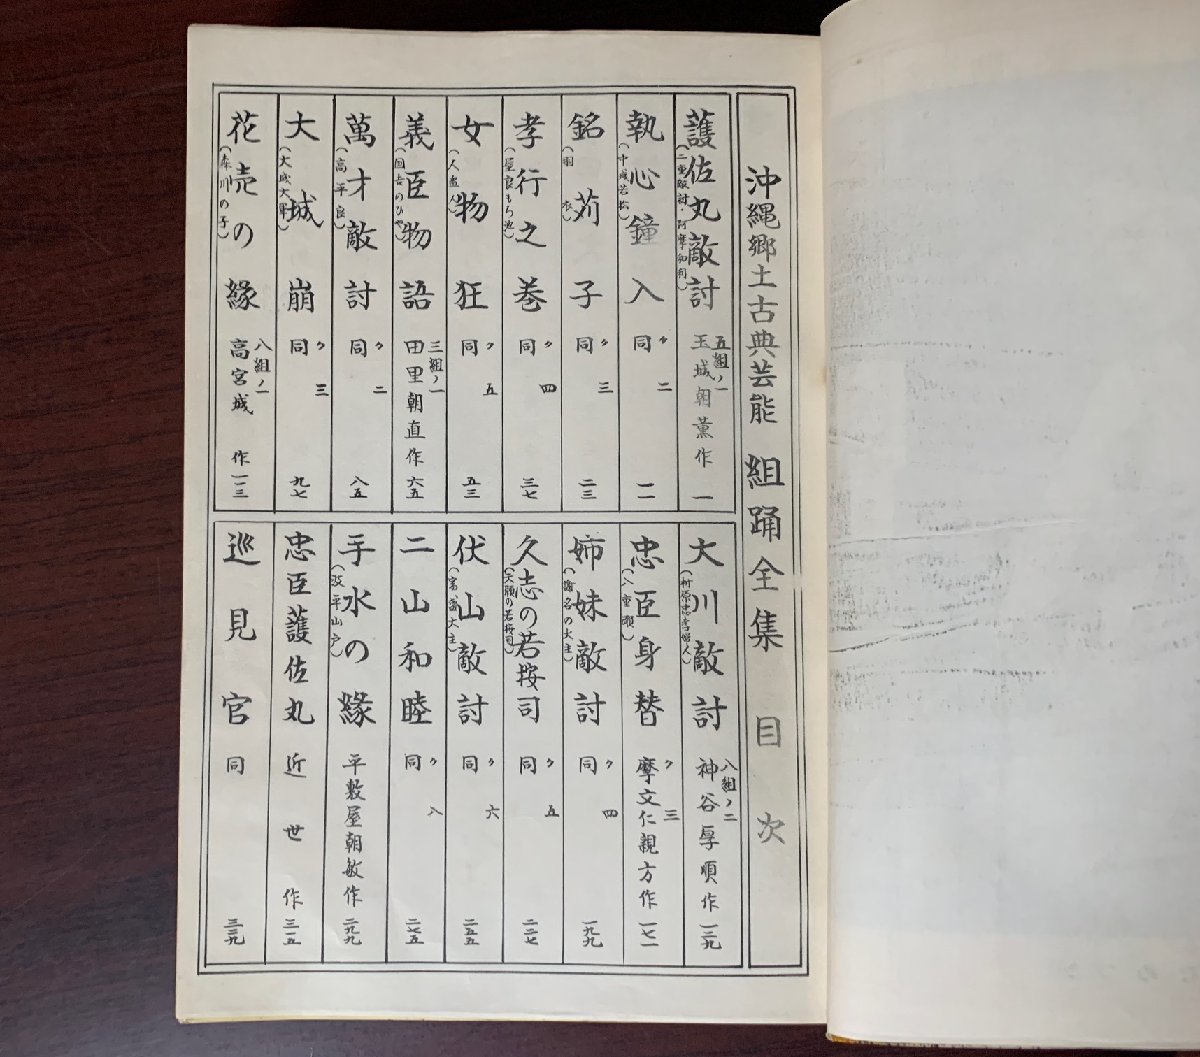 沖縄郷土古典芸能 組踊全集 目次
護佐丸敵討 (二童敵討・阿摩和利) 五組ノ一 玉城朝薫作 一
執心鐘入 (中城若松) 同 〃 二 一一
銘苅子 (羽衣) 同 〃 三 二三
孝行之巻 同 〃 四 三七
女物狂 (人盗人) 同 〃 五 五三
義臣物語 (国吉のひや) 三組ノ一 田里朝直作 六五
萬才敵討 (高平良) 同 〃 二 八五
大城崩 (大城大軍) 同 〃 三 九七
花売の縁 (森川の子) 八組ノ一 高宮城 作 一一三
大川敵討 八組ノ二 神谷厚順作 一二九
忠臣身替 (八重瀬) 〃 三 摩文仁親方作 一七一
姉妹敵討 同 〃 四 一九九
久志の若按司 (天願の若按司) 同 〃 五 二二七
伏山敵討 (富盛大主) 同 〃 六 二五五
二山和睦 同 〃 八 二七五
手水の縁 (波平山戸) 平敷屋朝敏作 二九九
忠臣護佐丸 近世 作 三一五
巡見官 同 三三九